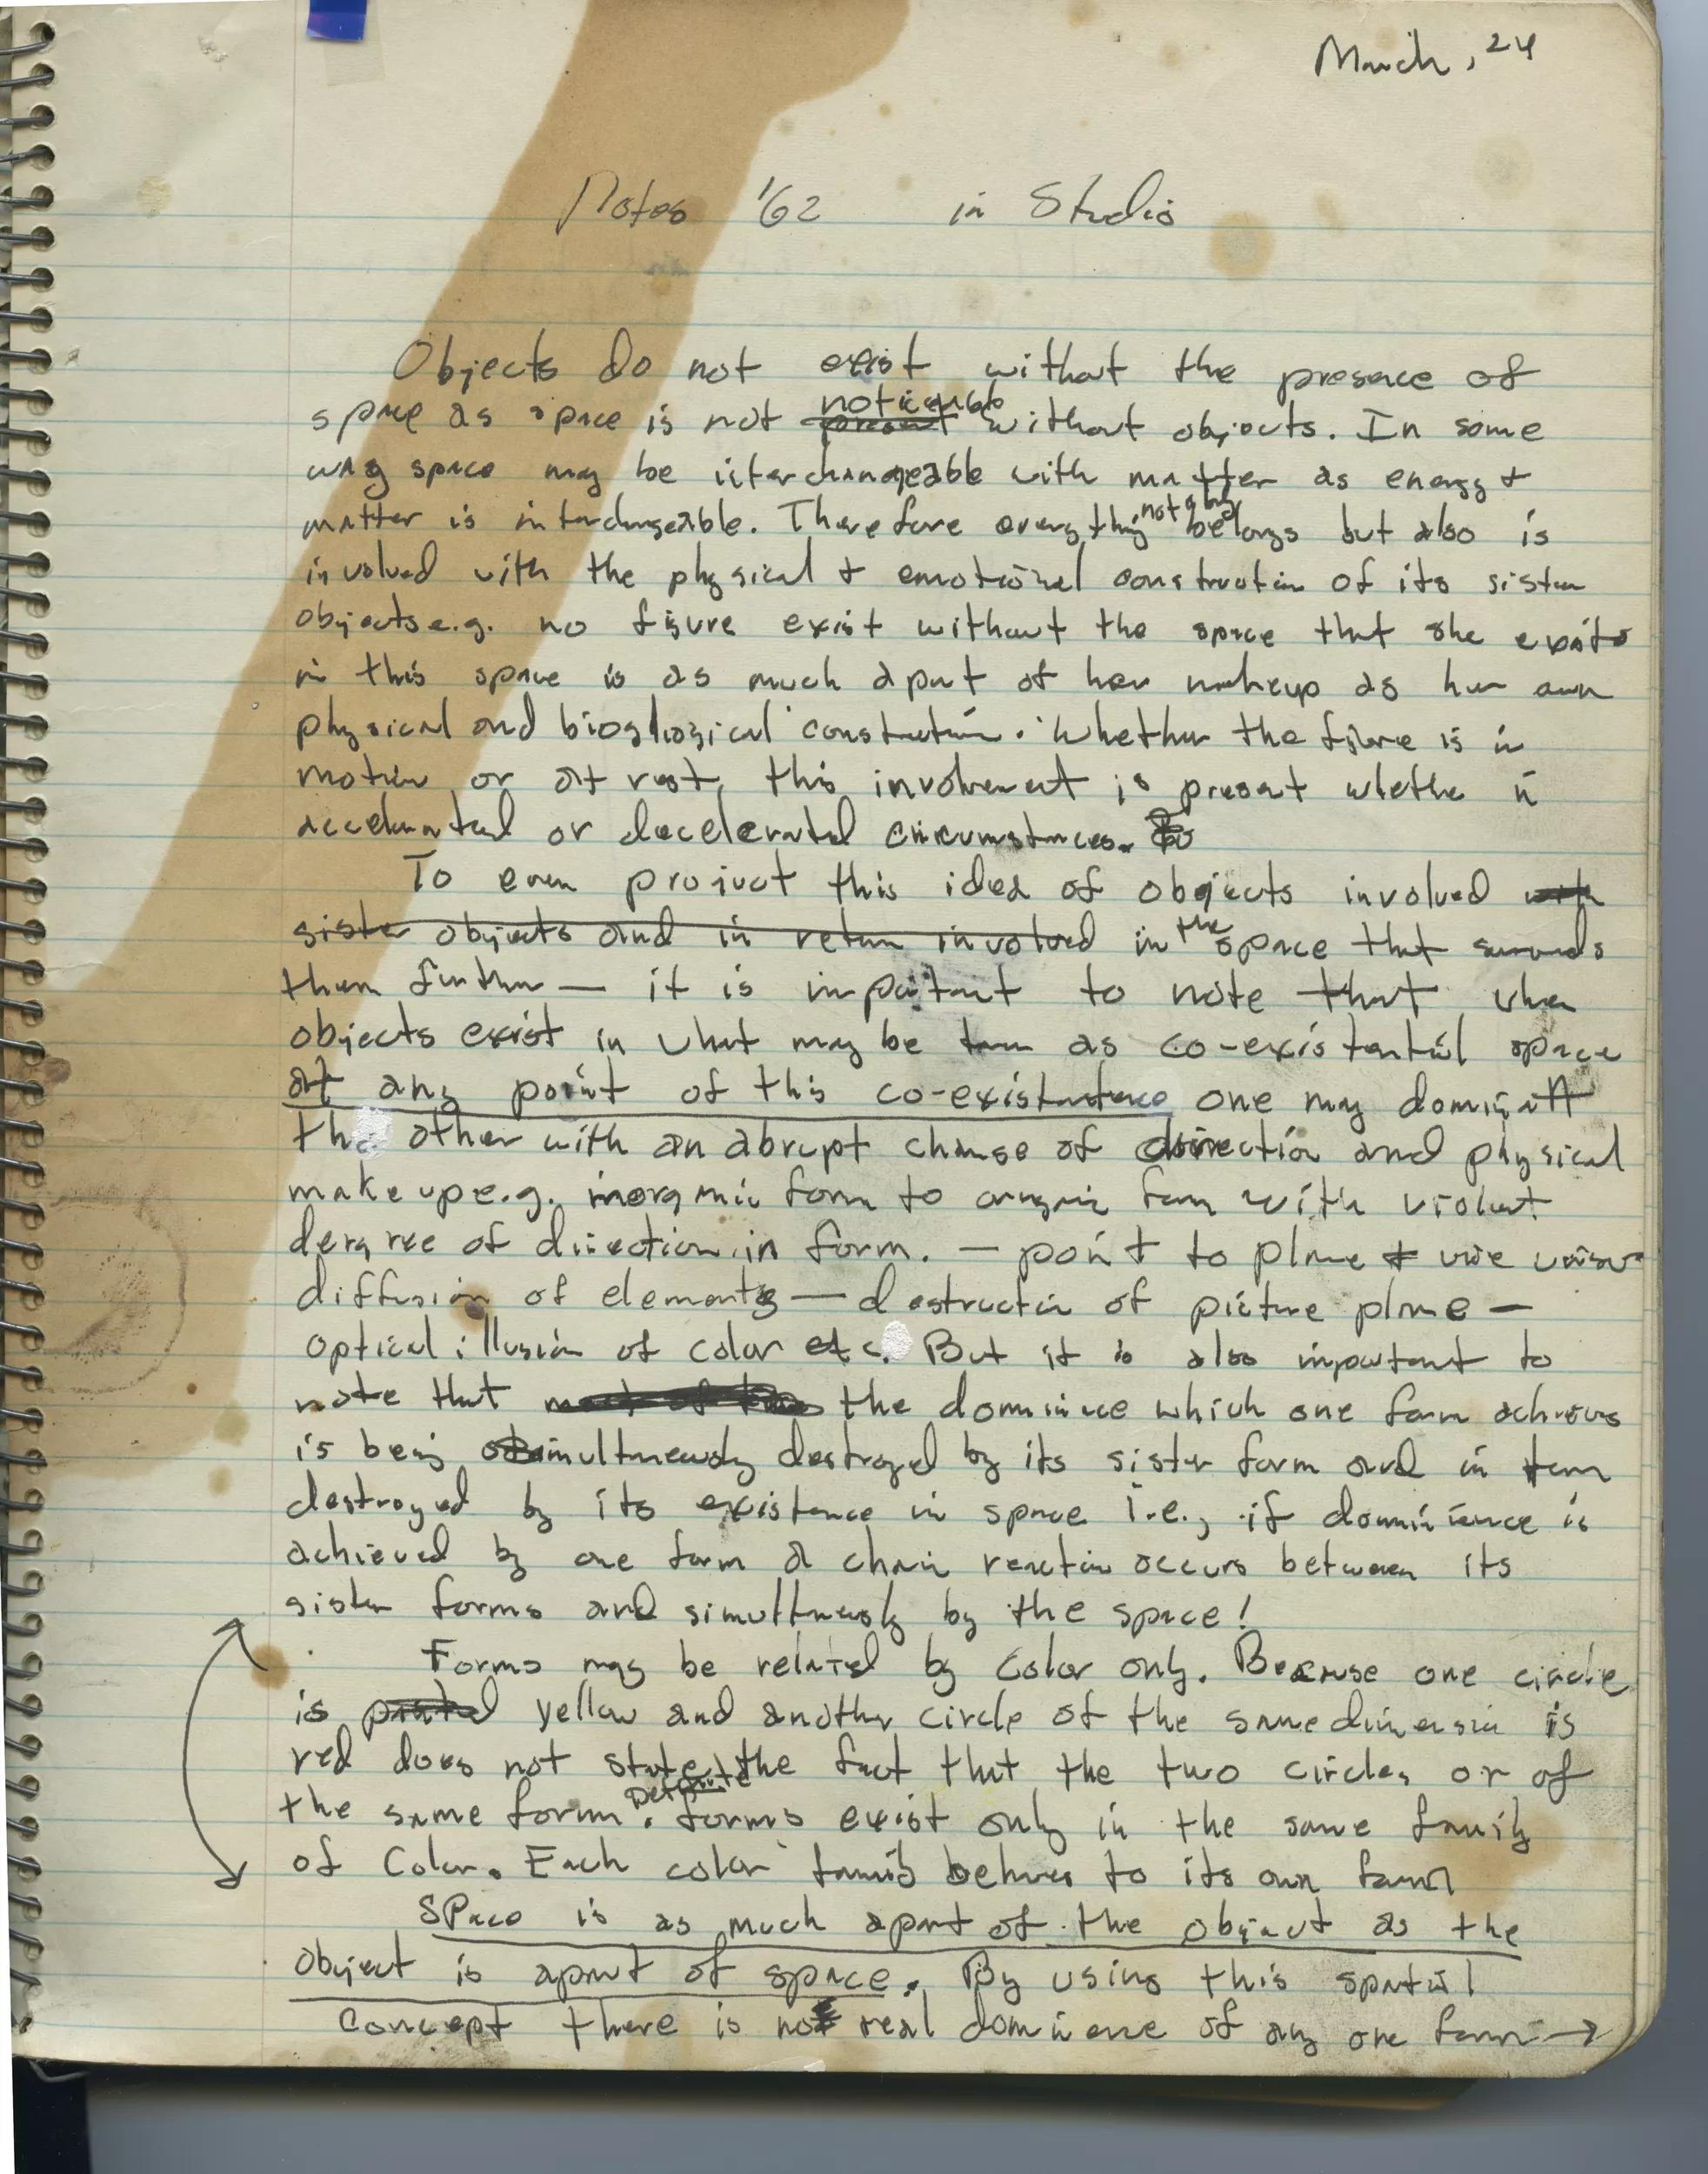 March, 24
Notes '62 in Studio
Objects do not exist without the presence of
space as space is not present noticeable without objects. In some
way space may be interchangeable with matter as energy +
matter is interchangeable. Therefore everything not only belongs but also is
involved with the physical + emotional construction of its sister
objects e.g. no figure exist without the space that she exists
in this space is as much apart of her makeup as her own
physical and biological construction. Whether the figure is in
motion or at rest, this involvement is present whether in
accelerated or decelerated circumstances.
To even project this idea of objects involved with
sister objects and in return involved in the space that surrounds
them further — it is important to note that when
objects exist in what may be term as co-existential space
at any point of this co-existentence one may dominate
the other with an abrupt change of direction and physical
make up e.g. inorganic form to organic form with violent
degree of direction in form. — point to plane + vice versa
diffusion of elements — destruction of picture plane —
optical illusion of color etc. But it is also important to
note that the dominance which one form achieves
is being simultaneously destroyed by its sister form and in turn
destroyed by its existence in space i.e., if dominience is
achieved by one form a chain reaction occurs between its
sister forms and simultaneously by the space!
Forms may be related by color only. Because one circle
is painted yellow and another circle of the same dimension is
red does not state the fact that the two circles or of
the same form. Definite forms exist only in the same family
of Color. Each color family behaves to its own form
Space is as much apart of the object as the
object is apart of space. By using this spatial
concept there is no real dominence of any one form →